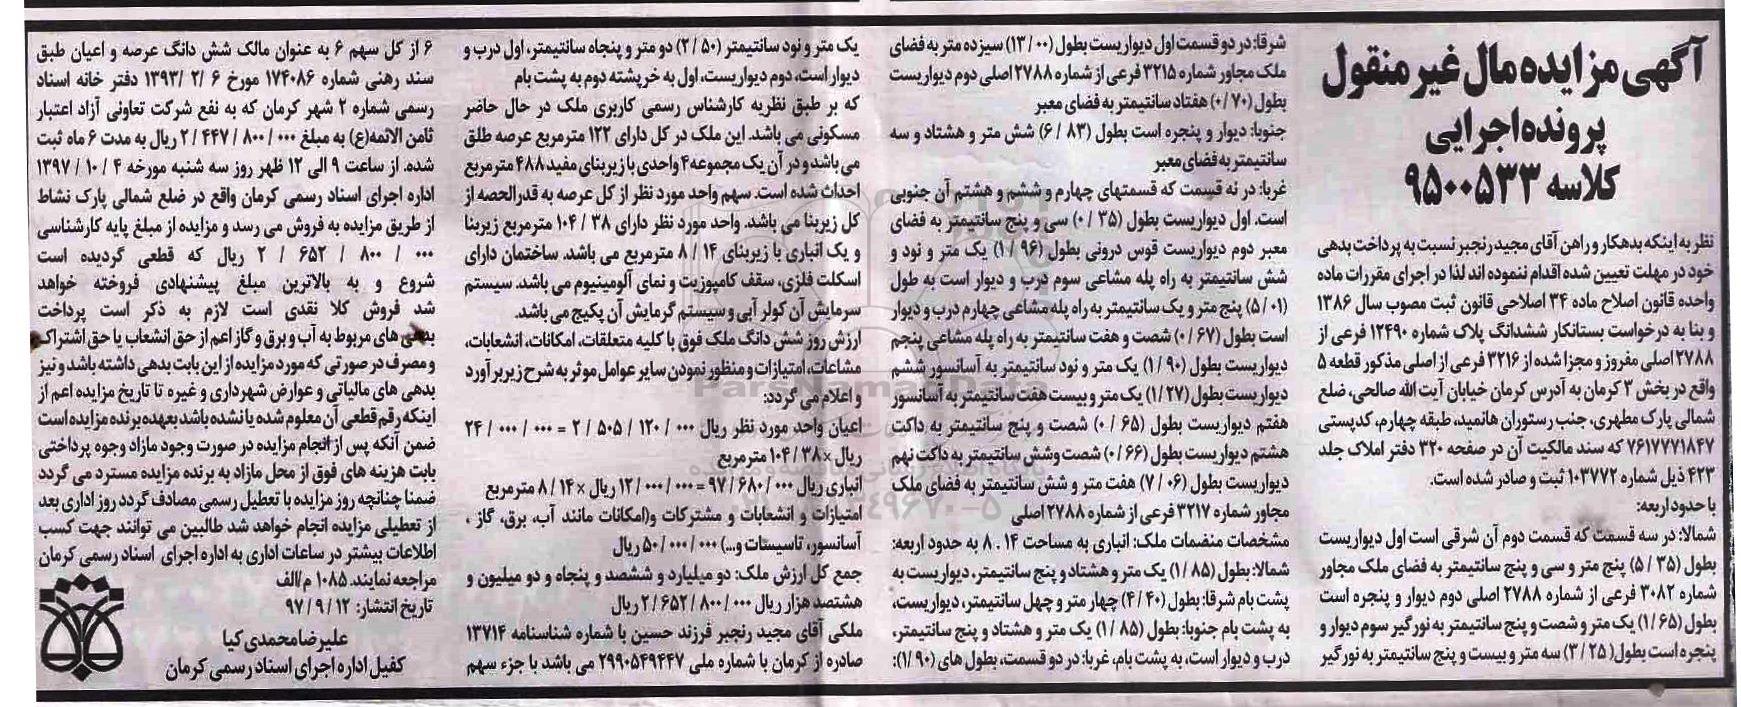 آگهی مزایده مال غیر منقول
پرونده اجرایی
کلاسه ۹۵۰۰۵۳۳
نظر به اینکه بدهکار و راهن آقای مجید رنجبر نسبت به پرداخت بدهی
خود در مهلت تعیین شده اقدام ننموده اند لذا در اجرای مقررات ماده
واحده قانون اصلاح ماده ۳۴ اصلاحی قانون ثبت مصوب سال ۱۳۸۶
و بنا به درخواست بستانکار ششدانگ پلاک شماره ۱۲۴۹۰ فرعی از
۲۷۸۸ اصلی مفروز و مجزا شده از ۳۲۱۶ فرعی از اصلی مذکور قطعه ۵
واقع در بخش ۳ کرمان به آدرس کرمان خیابان آیت الله صالحی، ضلع
شمالی پارک مطهری، جنب رستوران هانمید، طبقه چهارم، کدپستی
۷۶۱۷۷۷۱۸۴۷ که سند مالکیت آن در صفحه ۳۲۰ دفتر املاک جلد
۴۲۳ ذیل شماره ۱۰۳۷۷۲ ثبت و صادر شده است.
با حدود اربعه:
شمالا: در سه قسمت که قسمت دوم آن شرقی است اول دیواریست
بطول (۵/۳۵) پنج متر و سی و پنج سانتیمتر به فضای ملک مجاور
شماره ۳۰۸۲ فرعی از شماره ۲۷۸۸ اصلی دوم دیوار و پنجره است
بطول (۱/۶۵) یک متر و شصت و پنج سانتیمتر به نورگیر سوم دیوار و
پنجره است بطول( ۳/۲۵) سه متر و بیست و پنج سانتیمتر به نورگیر
شرقا: در دو قسمت اول دیواریست بطول (۱۳/۰۰) سیزده متر به فضای
ملک مجاور شماره ۳۲۱۵ فرعی از شماره ۲۷۸۸ اصلی دوم دیواریست
بطول (۰/۷۰) هفتاد سانتیمتر به فضای معبر
جنوبا: دیوار و پنجره است بطول (۶/۸۳) شش متر و هشتاد و سه
سانتیمتر به فضای معبر
غربا: در نه قسمت که قسمتهای چهارم و ششم و هشتم آن جنوبی
است. اول دیواریست بطول (۰/۳۵) سی و پنج سانتیمتر به فضای
معبر دوم دیواریست قوس درونی بطول (۱/۹۶) یک متر و نود و
شش سانتیمتر به راه پله مشاعی سوم درب و دیوار است به طول
(۵/۰۱) پنج متر و یک سانتیمتر به راه پله مشاعی چهارم درب و دیوار
است بطول (۰/۶۷) شصت و هفت سانتیمتر به راه پله مشاعی پنجم
دیواریست بطول (۱/۹۰) یک متر و نود سانتیمتر به آسانسور ششم
دیواریست بطول (۱/۲۷) یک متر و بیست هفت سانتیمتر به آسانسور
هفتم دیواریست بطول (۰/۶۵) شصت و پنج سانتیمتر به داکت
هشتم دیواریست بطول (۰/۶۶) شصت وشش سانتیمتر به داکت نهم
دیواریست بطول (۷/۰۶) هفت متر و شش سانتیمتر به فضای ملک
مجاور شماره ۳۲۱۷ فرعی از شماره ۲۷۸۸ اصلی
مشخصات منضمات ملک: انباری به مساحت ۸.۱۴ به حدود اربعه:
شمالا: بطول (۱/۸۵) یک متر و هشتاد و پنج سانتیمتر. دیواریست به
پشت بام شرقا: بطول (۴/۴۰) چهار متر و چهل سانتیمتر، دیواریست،
به پشت بام جنوبا: بطول (۱/۸۵) یک متر و هشتاد و پنج سانتیمتر،
درب و دیوار است، به پشت بام، غربا: در دو قسمت، بطول های (۱/۹۰):
یک متر و نود سانتیمتر (۲/۵۰) دو متر و پنجاه سانتیمتر، اول درب و
دیوار است، دوم دیواریست، اول به خرپشته دوم به پشت بام
که بر طبق نظریه کارشناس رسمی کاربری ملک در حال حاضر
مسکونی می باشد. این ملک در کل دارای ۱۲۲ مترمربع عرصه طلق
می باشد و در آن یک مجموعه ۴ واحدی با زیربنای مفید ۴۸۸ مترمربع
احداث شده است. سهم واحد مورد نظر از کل عرصه به قدرالحصه از
کل زیربنا می باشد. واحد مورد نظر دارای ۱۰۴/۳۸ مترمربع زیربنا
و یک انباری با زیربنای ۸/۱۴ مترمربع می باشد. ساختمان دارای
اسکلت فلزی، سقف کامپوزیت و نمای آلومینیوم می باشد. سیستم
سرمایش آن کولر آبی و سیستم گرمایش آن پکیج می باشد.
ارزش روز شش دانگ ملک فوق با کلیه متعلقات، امکانات، انشعابات،
مشاعات، امتیازات و منظور نمودن سایر عوامل موثر به شرح زیر برآورد
و اعلام می گردد:
اعیان واحد مورد نظر ریال ۲/۵۰۵/۱۲۰/۰۰۰ = ۲۴/۰۰۰/۰۰۰
ریال × ۱۰۴/۳۸ مترمربع
انباری ریال ۹۷/۶۸۰/۰۰۰ = ۱۲/۰۰۰/۰۰۰ ریال × ۸/۱۴ مترمربع
امتیازات و انشعابات و مشترکات و(امکانات مانند آب، برق، گاز ،
آسانسور، تاسیسات و...) ۵۰/۰۰۰/۰۰۰ ریال
جمع کل ارزش ملک: دو میلیارد و ششصد و پنجاه و دو میلیون و
هشتصد هزار ریال ۲/۶۵۲/۸۰۰/۰۰۰ ریال
ملکی آقای مجید رنجبر فرزند حسین با شماره شناسنامه ۱۳۷۱۴
صادره از کرمان با شماره ملی ۲۹۹۰۵۴۹۴۴۷ می باشد با جزء سهم
۶ از کل سهم ۶ به عنوان مالک شش دانگ عرصه و اعیان طبق
سند رهنی شماره ۱۷۴۰۸۶ مورخ ۶ /۲ /۱۳۹۳ دفتر خانه اسناد
رسمی شماره ۲ شهر کرمان که به نفع شرکت تعاونی آزاد اعتبار
ثامن الائمه(ع) به مبلغ ۲/۴۴۷/۸۰۰/۰۰۰ ریال به مدت ۶ ماه ثبت
شده. از ساعت ۹ الی ۱۲ ظهر روز سه شنبه مورخه ۴ /۱۰ /۱۳۹۷
اداره اجرای اسناد رسمی کرمان واقع در ضلع شمالی پارک نشاط
از طریق مزایده به فروش می رسد و مزایده از مبلغ پایه کارشناسی
۲/۶۵۲/۸۰۰/۰۰۰ ریال که قطعی گردیده است
شروع و به بالاترین مبلغ پیشنهادی فروخته خواهد
شد فروش کلا نقدی است لازم به ذکر است پرداخت
بدهی های مربوط به آب و برق و گاز اعم از حق انشعاب یا حق اشتراک
و مصرف در صورتی که مورد مزایده از این بابت بدهی داشته باشد و نیز
بدهی های مالیاتی و عوارض شهرداری و غیره تا تاریخ مزایده اعم از
اینکه رقم قطعی آن معلوم شده یا نشده باشد بعهده برنده مزایده است
ضمن آنکه پس از انجام مزایده در صورت وجود مازاد وجوه پرداختی
بابت هزینه های فوق از محل مازاد به برنده مزایده مسترد می گردد
ضمنا چنانچه روز مزایده با تعطیل رسمی مصادف گردد روز اداری بعد
از تعطیلی مزایده انجام خواهد شد طالبین می توانند جهت کسب
اطلاعات بیشتر در ساعات اداری به اداره اجرای اسناد رسمی کرمان
مراجعه نمایند. ۱۰۸۵ م/الف
تاریخ انتشار: ۹۷/۹/۱۲
علیرضا محمدی کیا
کفیل اداره اجرای اسناد رسمی کرمان
ParsNamadData